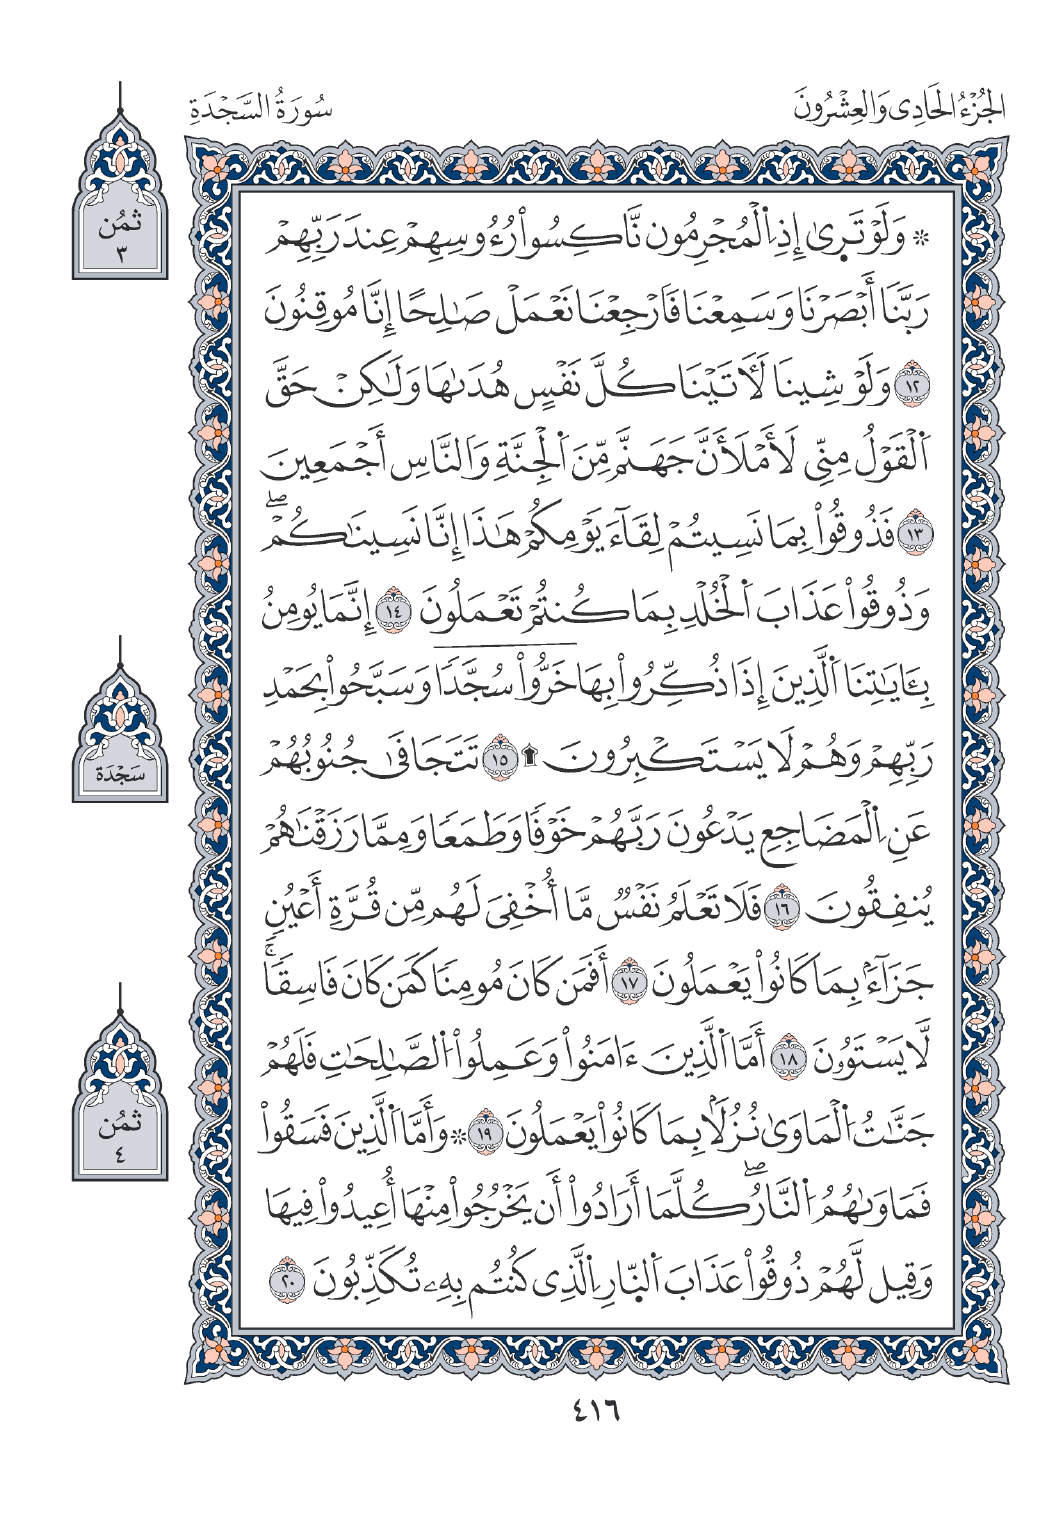 الجُزْءُ الحَادِى وَالعِشْرُونَ
سُورَةُ السَّجْدَةِ
ثُمُن
٣
۞ وَلَوْ تَرِىٰ إِذِ اِ۬لْمُجْرِمُونَ نَاكِسُواْ رُءُوسِهِمْ عِندَ رَبِّهِمْ
رَبَّنَا أَبْصَرْنَا وَسَمِعْنَا فَارْجِعْنَا نَعْمَلْ صَٰلِحًا إِنَّا مُوقِنُونَ
١٢ وَلَوْ شِينَا لَأَتَيْنَا كُلَّ نَفْسٍ هُدَىٰهَا وَلَٰكِنْ حَقَّ
اَ۬لْقَوْلُ مِنِّى لَأَمْلَأَنَّ جَهَنَّمَ مِنَ اَ۬لْجِنَّةِ وَالنَّاسِ أَجْمَعِينَ
١٣ فَذُوقُواْ بِمَا نَسِيتُمْ لِقَآءَ يَوْمِكُمْ هَٰذَا إِنَّا نَسِينَٰكُمْۖ
وَذُوقُواْ عَذَابَ اَ۬لْخُلْدِ بِمَا كُنتُمْ تَعْمَلُونَ ١٤ إِنَّمَا يُومِنُ
بِـَٔايَٰتِنَا اَ۬لَّذِينَ إِذَا ذُكِّرُواْ بِهَا خَرُّواْ سُجَّدًا وَسَبَّحُواْ بِحَمْدِ
رَبِّهِمْ وَهُمْ لَا يَسْتَكْبِرُونَ ۩ ١٥ تَتَجَافَىٰ جُنُوبُهُمْ
سَجْدَة
عَنِ اِ۬لْمَضَاجِعِ يَدْعُونَ رَبَّهُمْ خَوْفًا وَطَمَعًا وَمِمَّا رَزَقْنَٰهُمْ
يُنفِقُونَ ١٦ فَلَا تَعْلَمُ نَفْسٌ مَّا أُخْفِىَ لَهُم مِّن قُرَّةِ أَعْيُنٍ
جَزَآءًۢ بِمَا كَانُواْ يَعْمَلُونَ ١٧ أَفَمَن كَانَ مُومِنًا كَمَن كَانَ فَاسِقًاۚ
لَّا يَسْتَوُۥنَ ١٨ أَمَّا اَ۬لَّذِينَ ءَامَنُواْ وَعَمِلُواْ اُ۬لصَّٰلِحَٰتِ فَلَهُمْ
جَنَّٰتُ اُ۬لْمَاوَىٰ نُزُلًۢا بِمَا كَانُواْ يَعْمَلُونَ ١٩ ۞ وَأَمَّا اَ۬لَّذِينَ فَسَقُواْ
ثُمُن
٤
فَمَاوَىٰهُمُ اُ۬لنَّارُۖ كُلَّمَا أَرَادُواْ أَن يَخْرُجُواْ مِنْهَا أُعِيدُواْ فِيهَا
وَقِيل لَّهُمْ ذُوقُواْ عَذَابَ اَ۬لنّ۪ارِ اِ۬لَّذِى كُنتُم بِهِۦ تُكَذِّبُونَ ٢٠
٤١٦